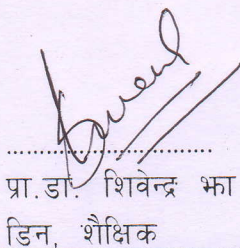 प्रा.डा. शिवेन्द्र झा
डिन, शैक्षिक